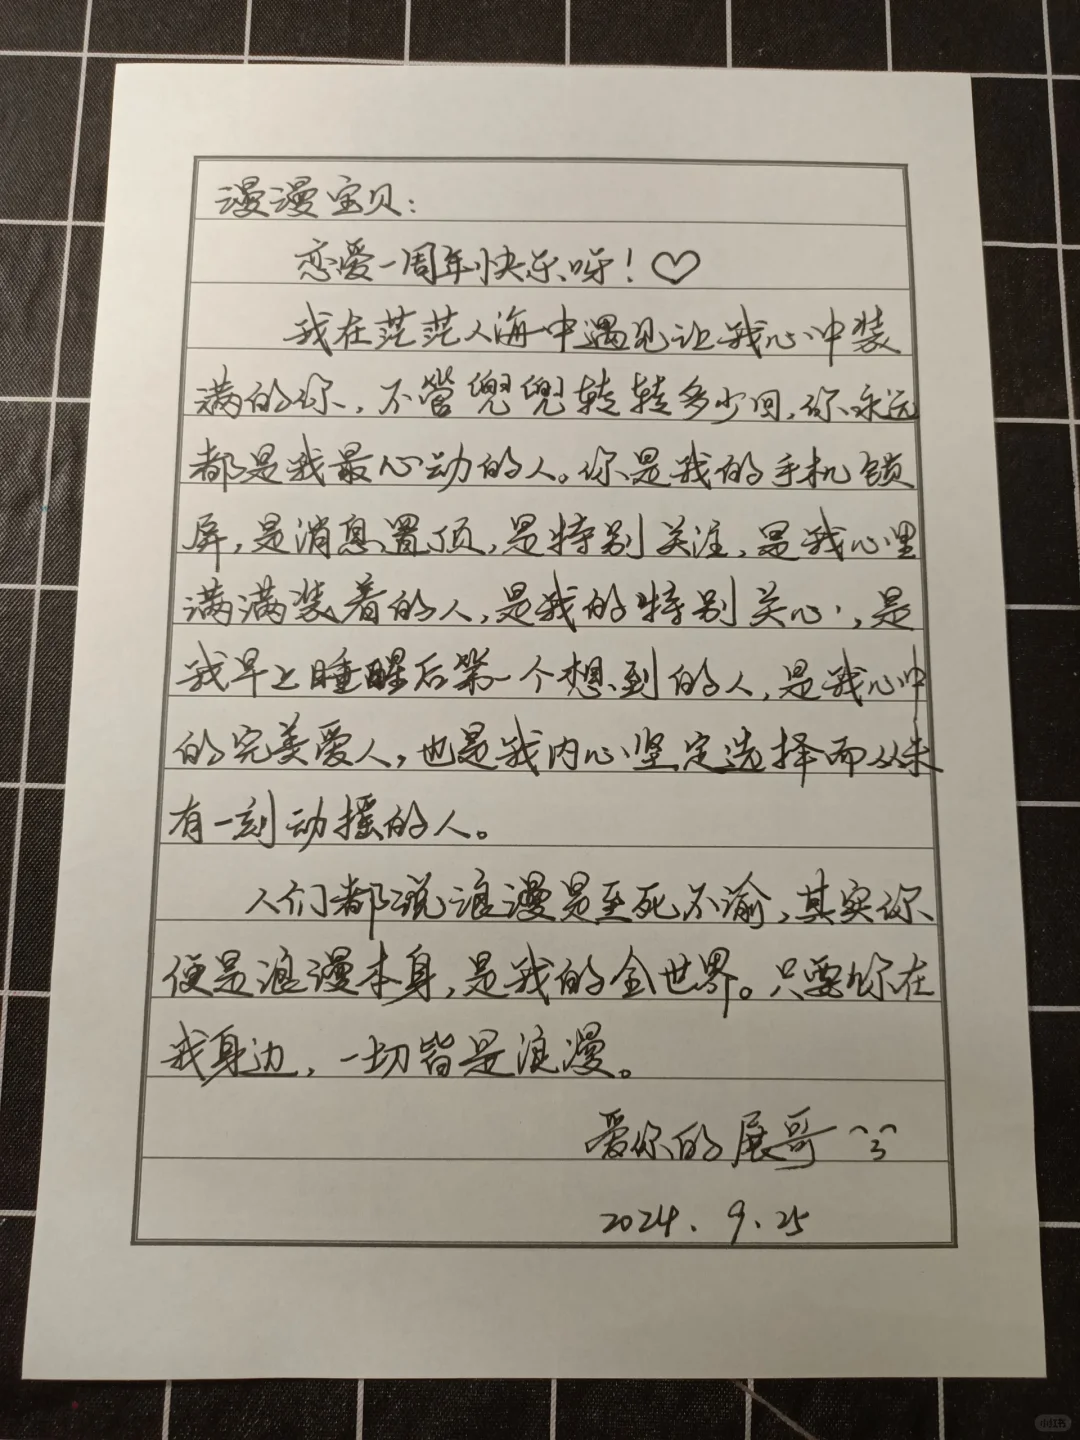 漫漫宝贝：
恋爱一周年快乐呀！♡
我在茫茫人海中遇见让我心中装
满的你，不管兜兜转转多少回，你永远
都是我最心动的人。你是我的手机锁
屏，是消息置顶，是特别关注，是我心里
满满装着的人，是我的特别关心，是
我早上睡醒后第一个想到的人，是我心中
的完美爱人，也是我内心坚定选择而从未
有一刻动摇的人。
人们都说浪漫是至死不渝，其实你
便是浪漫本身，是我的全世界。只要你在
我身边，一切皆是浪漫。
爱你的展哥
2024.9.25
小红书